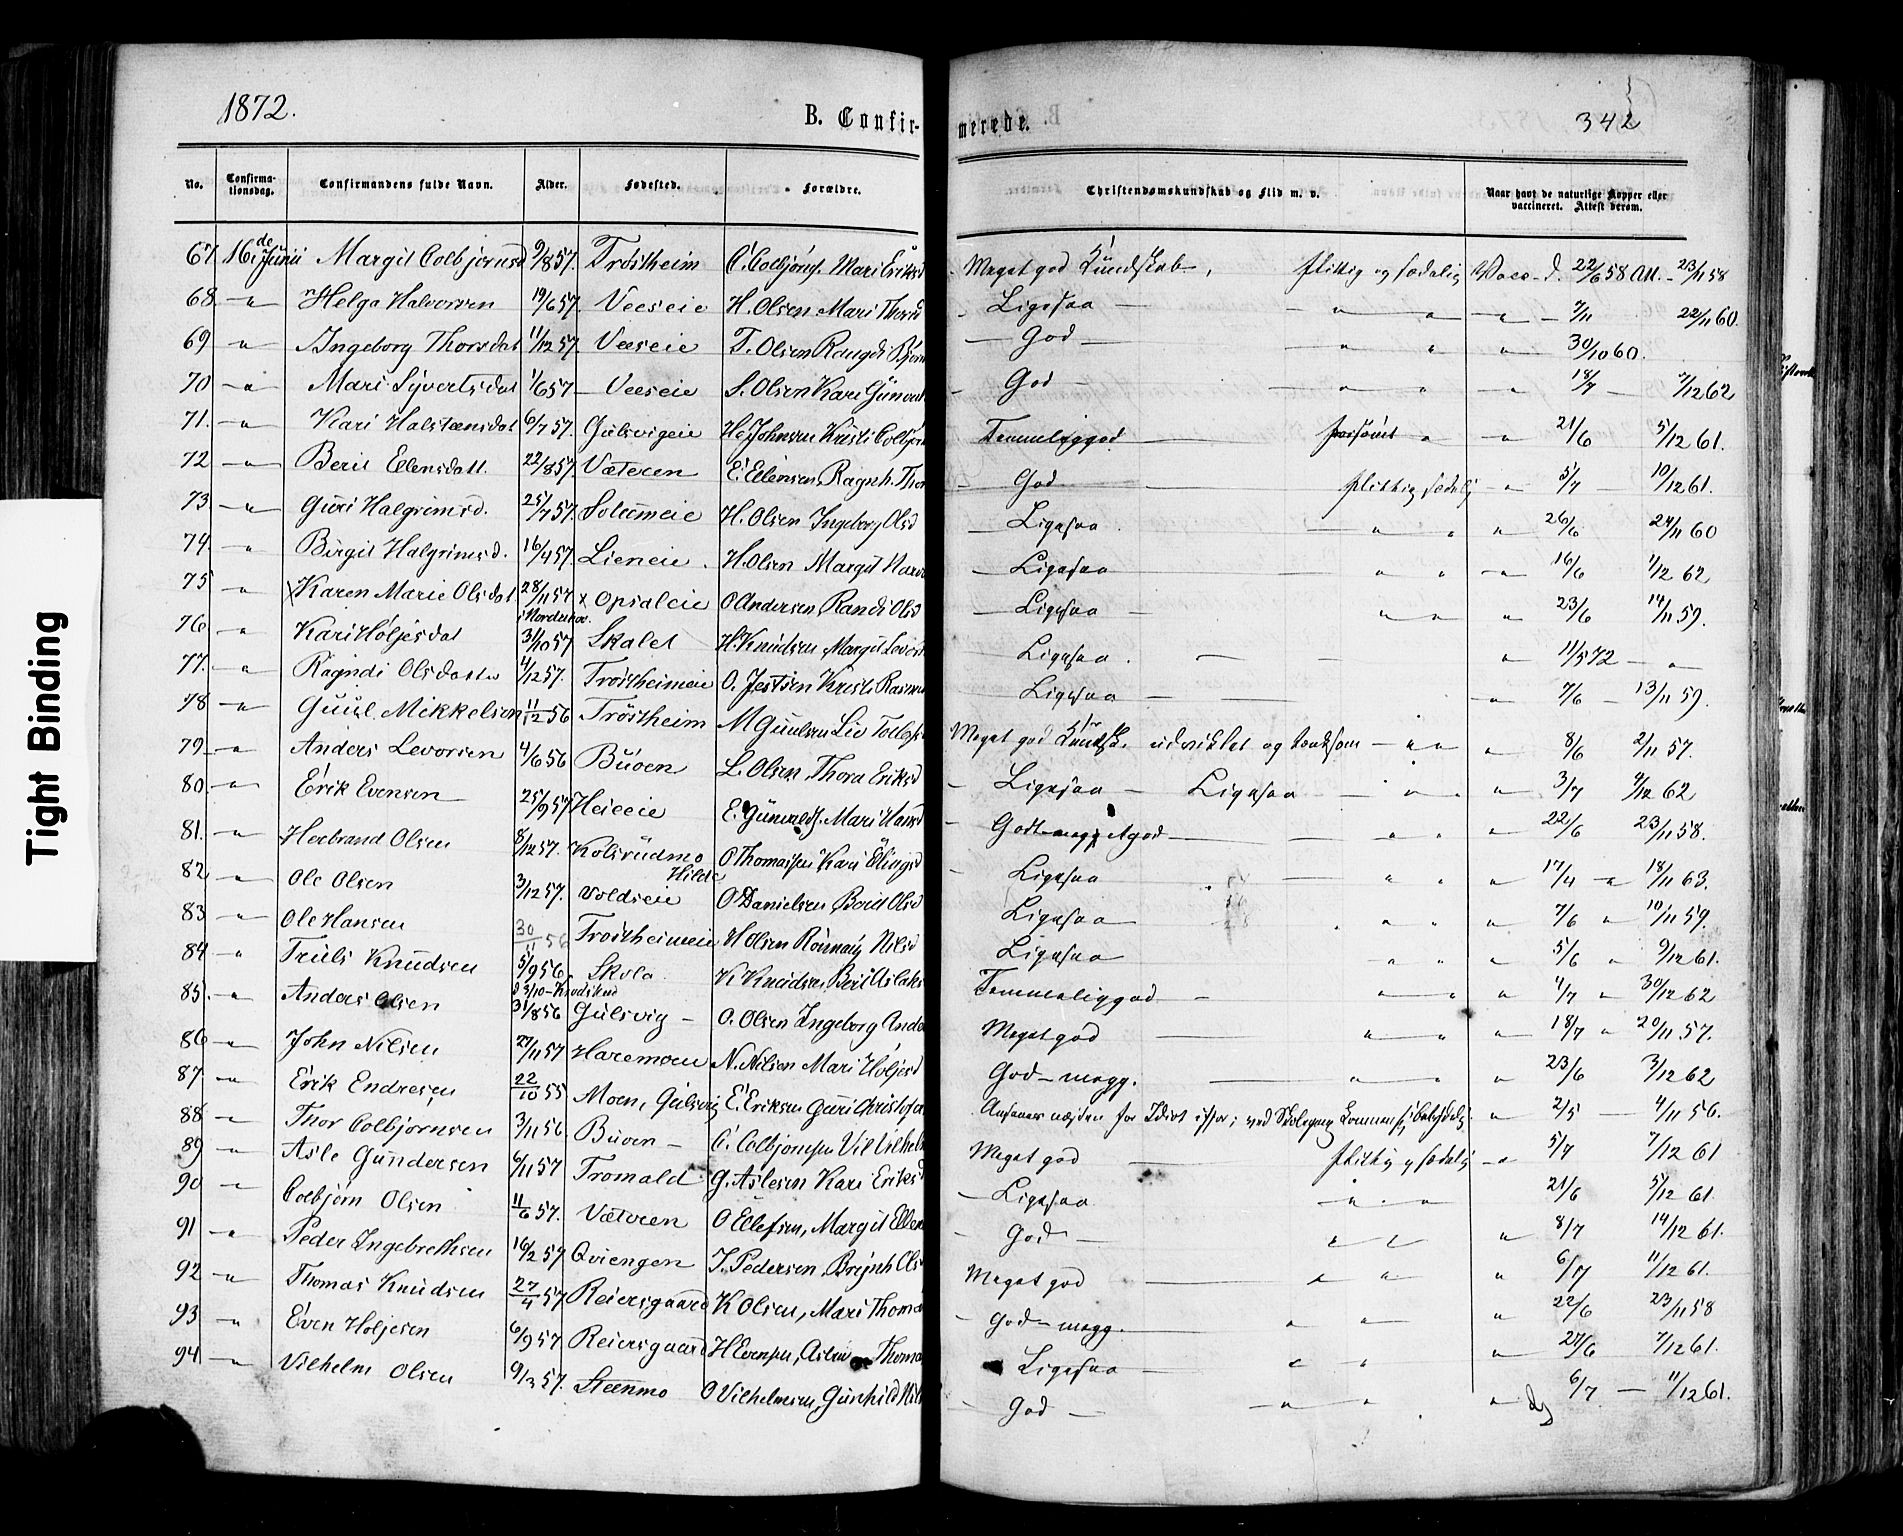 1872.
B. Confir-
merede.
342
No. Confirma-tionsdag. Confirmandens fulde Navn. Alder. Fødested. Forældre. Christendomskundskab og Flid m. v. Naar havt de naturlige Kopper eller vaccineret. Attest derom.
67 16de Junii Margit Colbjørnsd 9/8 57. Trøstheim C. Colbjørns. Mari Eriksd Meget god Kundskab, flittig og sædelig Vacc. d. 22/6 58 Att. 23/11 58
68 Helga Halvorsen 19/6 57. Veeseie H. Olsen Mari Ligesaa 7/11 22/11 60.
69 Ingeborg Thorsdat 11/12 57 Veeseie T. Olsen Rangdi God 30/10 60.
70 Mari Syvertsdat 1/6 57 Veeseie S. Olsen Kari God 18/7 7/12 62
71. Kari Halsteensdat 6/7 57. Gulsvigeie Johnsen Kristi Colbj Temmeliggod 21/6 5/12 61.
72 Berit Ellensdatt. 22/8 57. Væteren E. Ellensen Ragnh. Tho God flittig sædelig 5/7 10/12 61.
73 Guri Halgrimsd. 25/7 57. Solumeie H. Olsen Ingeborg Olsd Ligesaa 26/6 24/11 60
74. Birgit Halgrimsd. 16/4 57. Lieneie H. Olsen Margit Ligesaa 16/6 1/12 62
75 Karen Marie Olsdat 28/11 57 x Opsaleie O Andersen Randi Olsd Ligesaa 23/6 14/11 59.
76 Kari Høljesdat 31/10 57 Skalet H. Knudsen Margit Ligesaa 11/5 72
77. Ragndi Olsdatter 4/12 57. Trøstheimeie O. Jestsen Kristi Ligesaa 7/6 13/11 59.
78 Guul Mikkelsen 11/12 56 Trøstheim M Guulsen Liv Meget god Kundsk. udviklet og tænksom 8/6 2/11 57.
79 Anders Levorsen 4/6 56 Buøen L. Olsen, Thora Eriksd Ligesaa Ligesaa 3/7 9/12 62
80. Erik Evensen 25/9 57 Heieeie E. Gunvalds. Mari Godt megg. 22/6 23/11 58.
81. Herbrand Olsen 8/12 57. Kolsrudmo O Thomassen Kari Ligesaa 17/4 18/11 63.
82 Ole Olsen 3/12 57. Hilde Voldseie O Danielsen Berit Olsd Ligesaa 7/6 10/11 59.
83 Ole Hansen 30/11 56 Trøstheimeie H Olsen Nilsd Ligesaa 5/6 9/12 61.
84 Truls Knudsen 5/9 56 Skola K Knudsen Berit Aslaks Temmeliggod 4/7 30/12 62
85. Anders Olsen 31/8 56 Gulsvig O. Olsen Ingeborg Ande Meget god 18/7 20/11 57.
86 John Nilsen 27/11 57 Haremoen N. Nilsen Mari Høljesd God megg. 23/6 3/12 62
87. Erik Endresen 22/10 55 Moen, Gulsvig E. Eriksen Guri Christof Ansees næsten for Idiot 2/5 4/11 56.
88 Thor Colbjørnsen 3/11 56 Buøen C. Colbjørnsen Meget god flittig og sædelig 5/7 7/12 61
89 Asle Gundersen 6/11 57 Tromald G. Aslesen Kari Eriksd Ligesaa 21/6 5/12 61.
90 Colbjørn Olsen 11/6 57. Væteren O Ellefsen, Margit Ellen God 8/7 14/12 61.
91 Peder Ingebrethsen 16/2 57 Qviengen I. Pedersen Meget god 6/7 11/12 61.
92 Thomas Knudsen 27/4 57 Reiersgaard K Olsen, Mari Thoma God megg. 22/6 23/11 58
93 Even Høljesen 6/9 57 Reiersgaard H Evensen, Thoma Ligesaa 27/6 7/12 61.
94 Vilhelm Olsen 9/3 57. Steenmo O Vilhelmsen, Gunhild Nil God 6/7 11/12 61.
Tight Binding